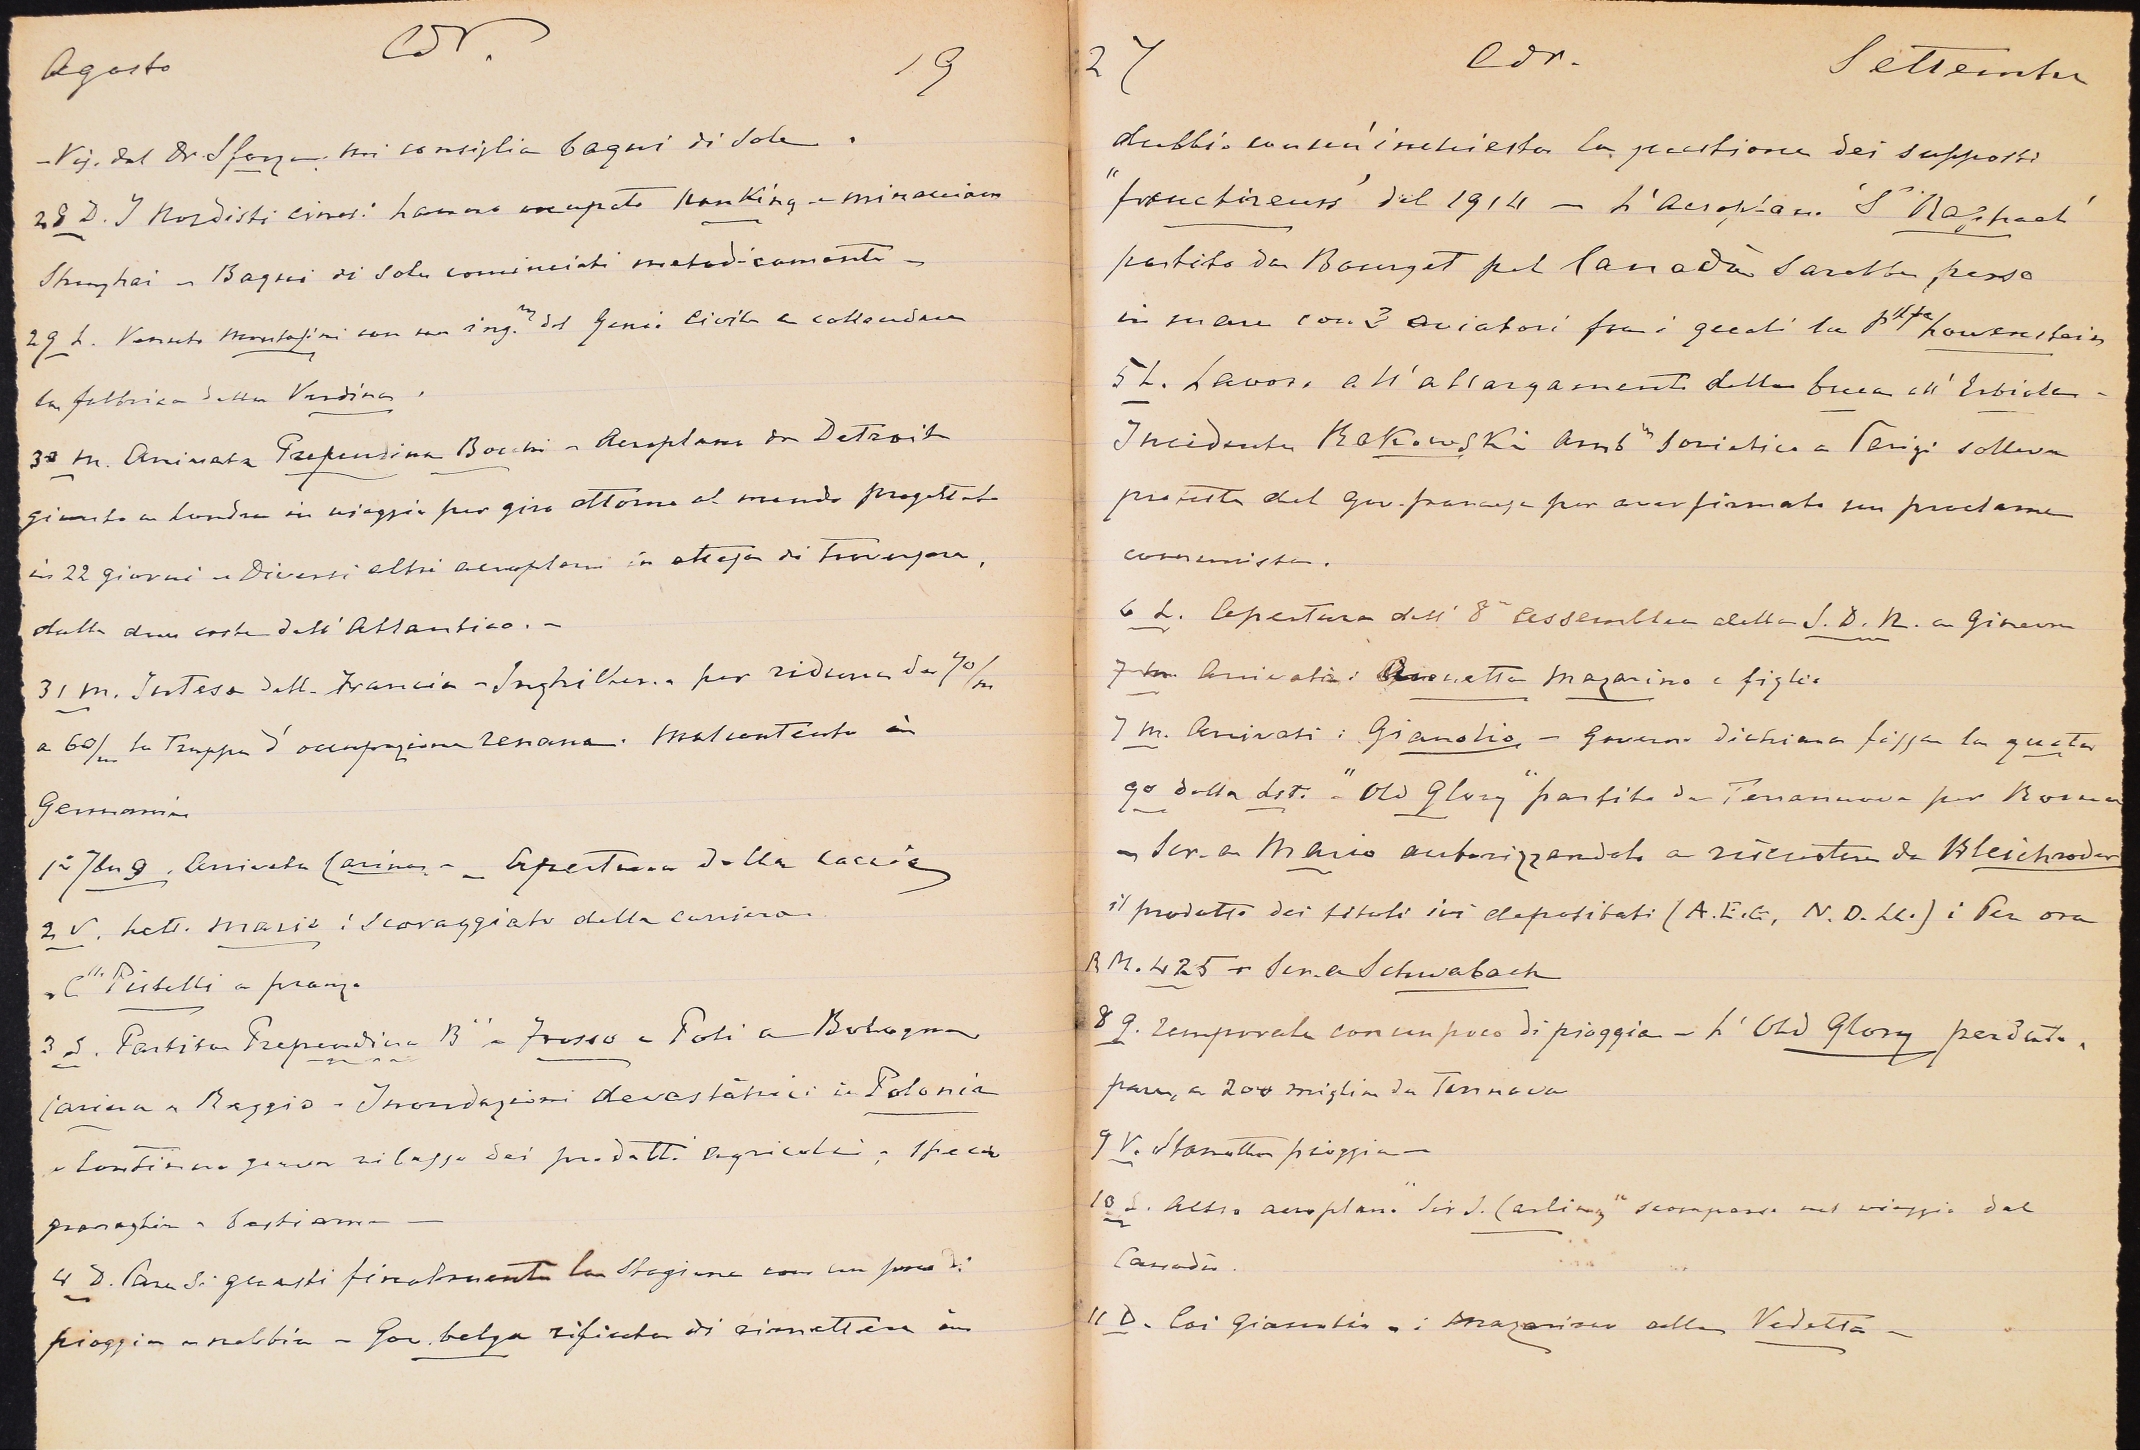 Agosto Cdr. 19
- Vis. dal Dr Sforza. mi consiglia bagni di sole.
28 D. I Nordisti cinesi hanno occupato Nanking e minacciano
Shanghai - Bagni di sole cominciati metodicamente -
29 L. Venuto Montafini con un ing.re del Genio Civile a collaudare
la fabbrica della Verdina.
30 M. Arrivata Trependina Bocchi - Aeroplano da Detroit
giunto a Londra in viaggio per giro attorno al mondo progettato
in 22 giorni - Diversi altri aeroplani in attesa di traversare,
dalle due coste dell'Atlantico. -
31 M. Intesa della Francia - Inghilterra per ridurre da 70/m
a 60/m le truppe d'occupazione renana. Malcontento in
Germania
1° 7bre g. Arrivata Carina - - Apertura della caccia
2 V. Lett. Mario: scoraggiato della carriera.
- C Pistelli a pranzo
3 S. Partita Trependina B e Frasso e Poli a Bologna
Carina a Reggio - Inondazioni devastatrici in Polonia
- Continua grave ribasso dei prodotti agricoli, specie
granaglie e bestiame -
4 D. Pare si guasti finalmente la stagione con un poco di
pioggia e nebbia - Gov. belga rifiuta di rimettere in
27 Cdr. Settembre
dubbio con un'inchiesta la questione dei supposti
"franctireurs" del 1914 - L'Aeroplano "St Raphael"
partito da Bourget pel Canadà sarebbe perso
in mare con 3 aviatori fra i quali la p.ssa Lowenstein
5 L. Lavoro all'allargamento della buca all'Erbiola -
Incidente Rakowski Amb.re Sovietico a Parigi solleva
proteste del gov. francese per aver firmato un proclama
comunista.
6 L. Apertura dell'8a Assemblea della S.D.N. a Ginevra
7 m Arrivati: Annetta Mazarino e figlio
7 M. Arrivati: Gianotio - Governo dichiara fissa la quota
90 della Lst. - "Old Glory" partito da Terranuova per Roma
- Scr. a Mario autorizzandolo a riscuotere da Bleichroder
il prodotto dei titoli ivi depositati (A.E.G, N.D.Ll.) i Per ora
R M. 425 - Scr. a Schwabach
8 G. Temporale con un poco di pioggia - L'Old Glory perduto,
pare, a 200 miglia da Ternova
9 V. Stanotte pioggia -
10 S. Altro aeroplano "Sir J. Carling" scomparso nel viaggio dal
Canadà.
11 D. Coi Gianotio e i Mazarino alla Vedetta -